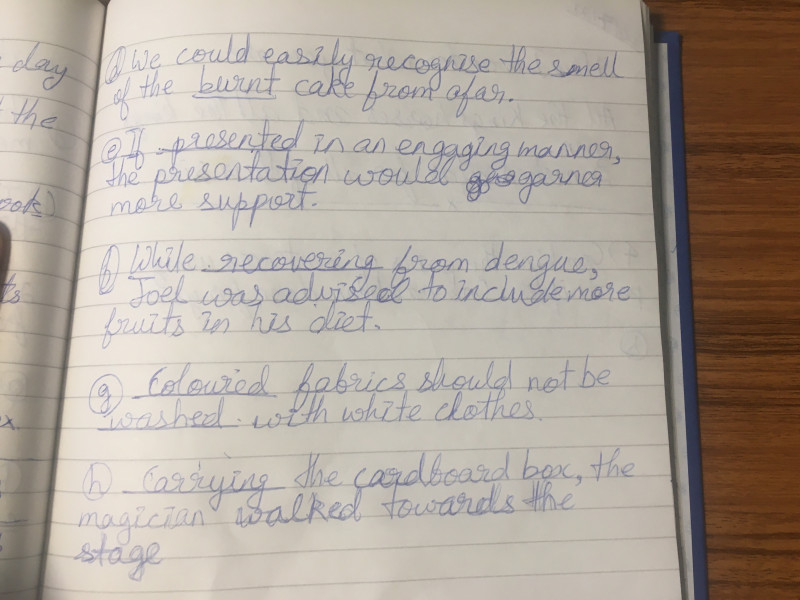 day
the
ook)
ts
x.
(d) We could easily recognise the smell
of the burnt cake from afar.
(e) If presented in an engaging manner,
the presentation would garner
more support.
(f) While recovering from dengue,
Joel was advised to include more
fruits in his diet.
(g) Coloured fabrics should not be
washed with white clothes.
(h) Carrying the cardboard box, the
magician walked towards the
stage